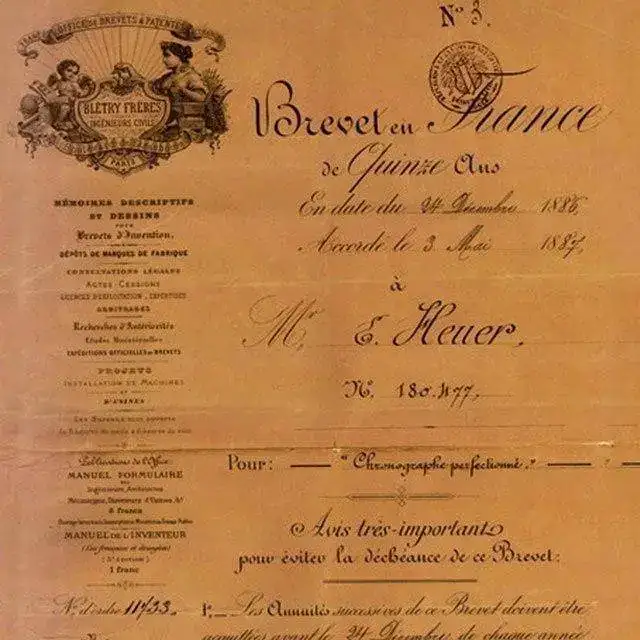 Nº 3.
OFFICE DE BREVETS & PATENTES
BLÉTRY FRÈRES
INGÉNIEURS CIVILS
PARIS
Brevet en France
de Quinze Ans
En date du 24 Décembre 1886,
Accordé le 3 Mai 1887,
à
Mr. E. Heuer.
Nº. 180.477,
Pour: — "Chronographe perfectionné." —
Avis très-important
pour éviter la déchéance de ce Brevet:
1º_ Les Annuités successives de ce Brevet doivent être
acquittées avant le 24 Décembre de chaque année
MÉMOIRES DESCRIPTIFS
ET DESSINS
POUR
Brevets d'Invention,
DÉPÔTS DE MARQUES DE FABRIQUE
CONSULTATIONS LÉGALES
ACTES CESSIONS
LICENCES D'EXPLOITATION, EXPERTISES
ARBITRAGES
Recherches d'Antériorités
Etudes Ministérielles
EXPÉDITIONS OFFICIELLES DE BREVETS
PROJETS
INSTALLATION DE MACHINES
ET
D'USINES
Publications de l'Office:
MANUEL FORMULAIRE
Ingénieurs, Architectes
6 francs
MANUEL DE L'INVENTEUR
(Lois françaises et étrangères)
1 franc
Nº d'ordre 11433.